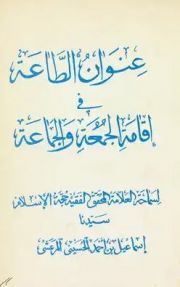 عِنوَانُ الطَّاعَة
في
إقَامَةِ الجُمعَةِ وَالجَمَاعَة
لسماحة العلامة المحقق الفقيه حجة الإسلام
سيدنا
إسماعيل بن أحمد الحسيني المرعشي